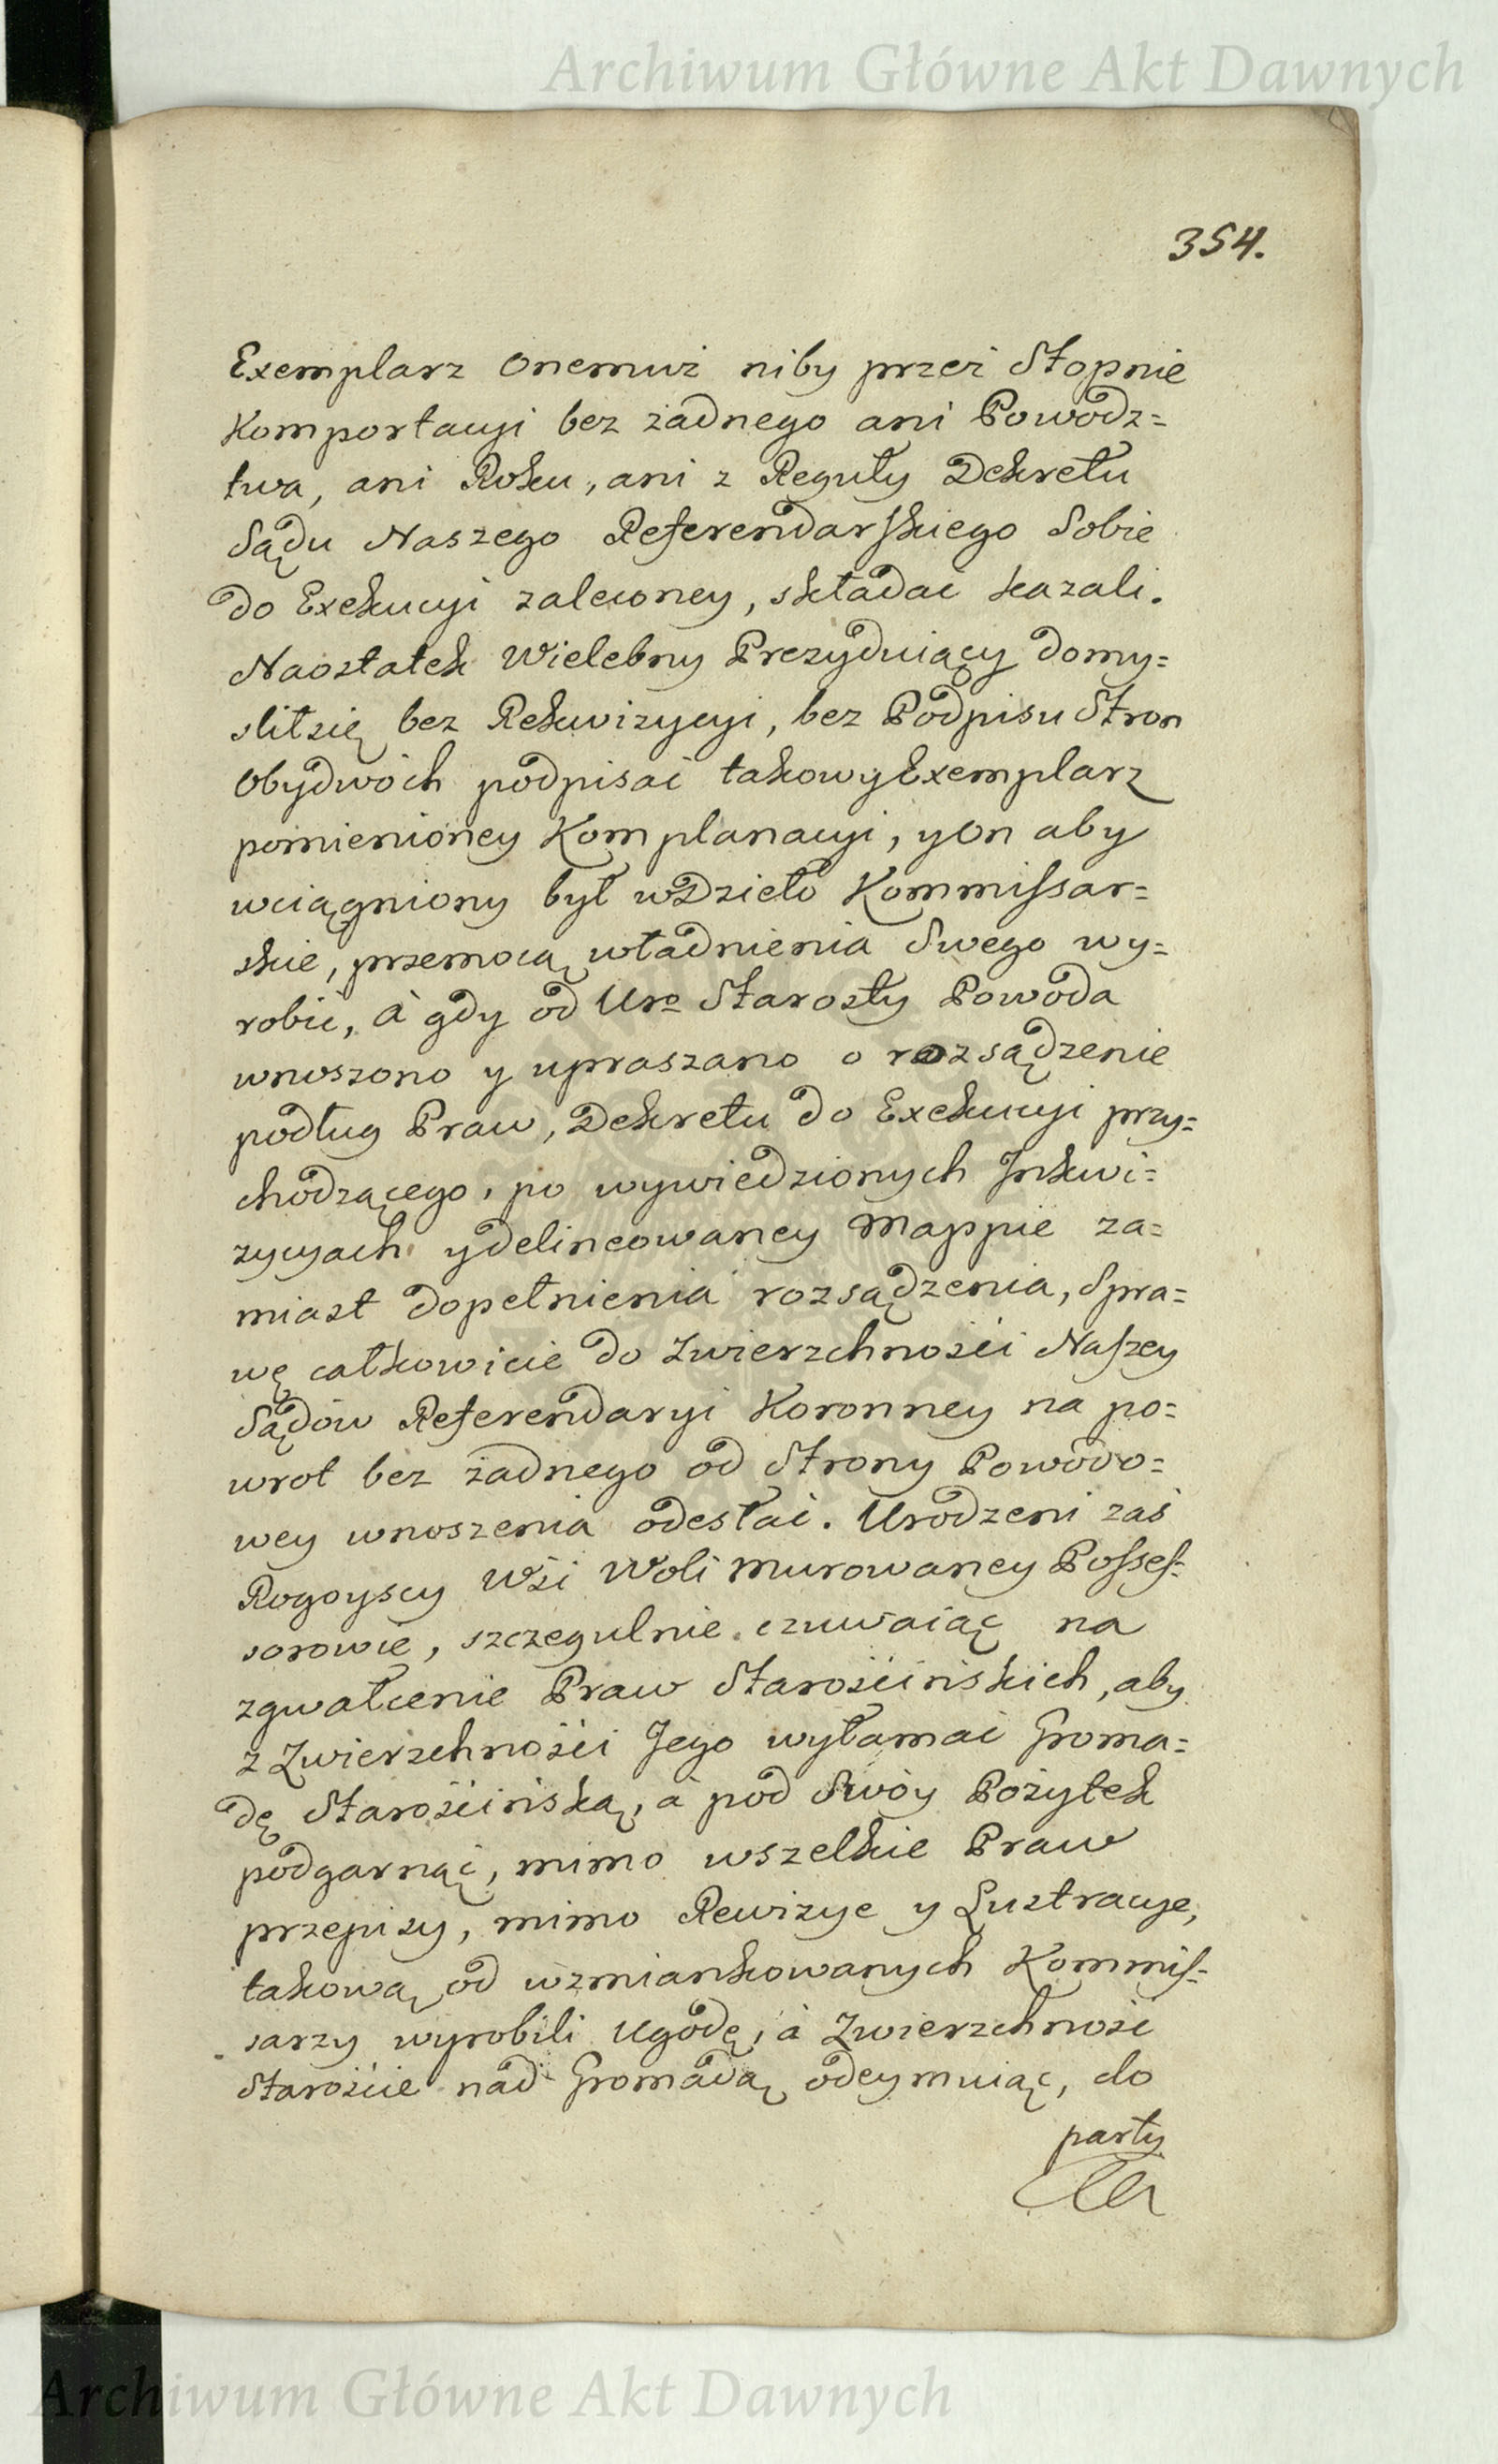 Archiwum Główne Akt Dawnych
354.
Exemplarz onemuż niby przez Stopnie
Komportacyi bez żadnego ani Powodz=
twa, ani Roku, ani z Reguły Dekretu
Sądu Naszego Referendarskiego Sobie
do Exekucyi zaleconey, składać kazali.
Naostatek Wielebny Prezyduiący domy=
slił się bez Rekwizycyi, bez Podpisu Stron
Obydwóch podpisać takowy Exemplarz
pomienioney Komplanacyi, y On aby
wciągniony był w Dzieło Kommissar=
skie, przemocą władnienia Swego wy=
robić, à gdy od Uro Starosty Powoda
wnoszono y upraszano o rozsądzenie
podług Praw, Dekretu do Exekucyi przy=
chodzącego, po wywiedzionych Inkwi=
zycyach y delineowaney Mappie za=
miast dopełnienia rozsądzenia, Spra=
wę całkowicie do Zwierzchności Naszey
Sądów Referendaryi Koronney na po=
wrot bez żadnego od Strony Powodo=
wey wnoszenia odesłać. Urodzeni zaś
Rogoyscy Wsi Woli Murowaney Posses=
sorowie, szczegulnie czuwaiąc na
zgwałcenie Praw Starościńskich, aby
z Zwierzchności Jego wyłamać Groma=
dę Starościńską, à pod Swóy Pożytek
podgarnąć, mimo wszelkie Praw
przepisy, mimo Rewizye y Lustracye,
takową od wzmiankowanych Kommis=
sarzy wyrobili Ugodę, à Zwierzchność
Staroście nad Gromadą odeymuiąc, do
party
Archiwum Główne Akt Dawnych